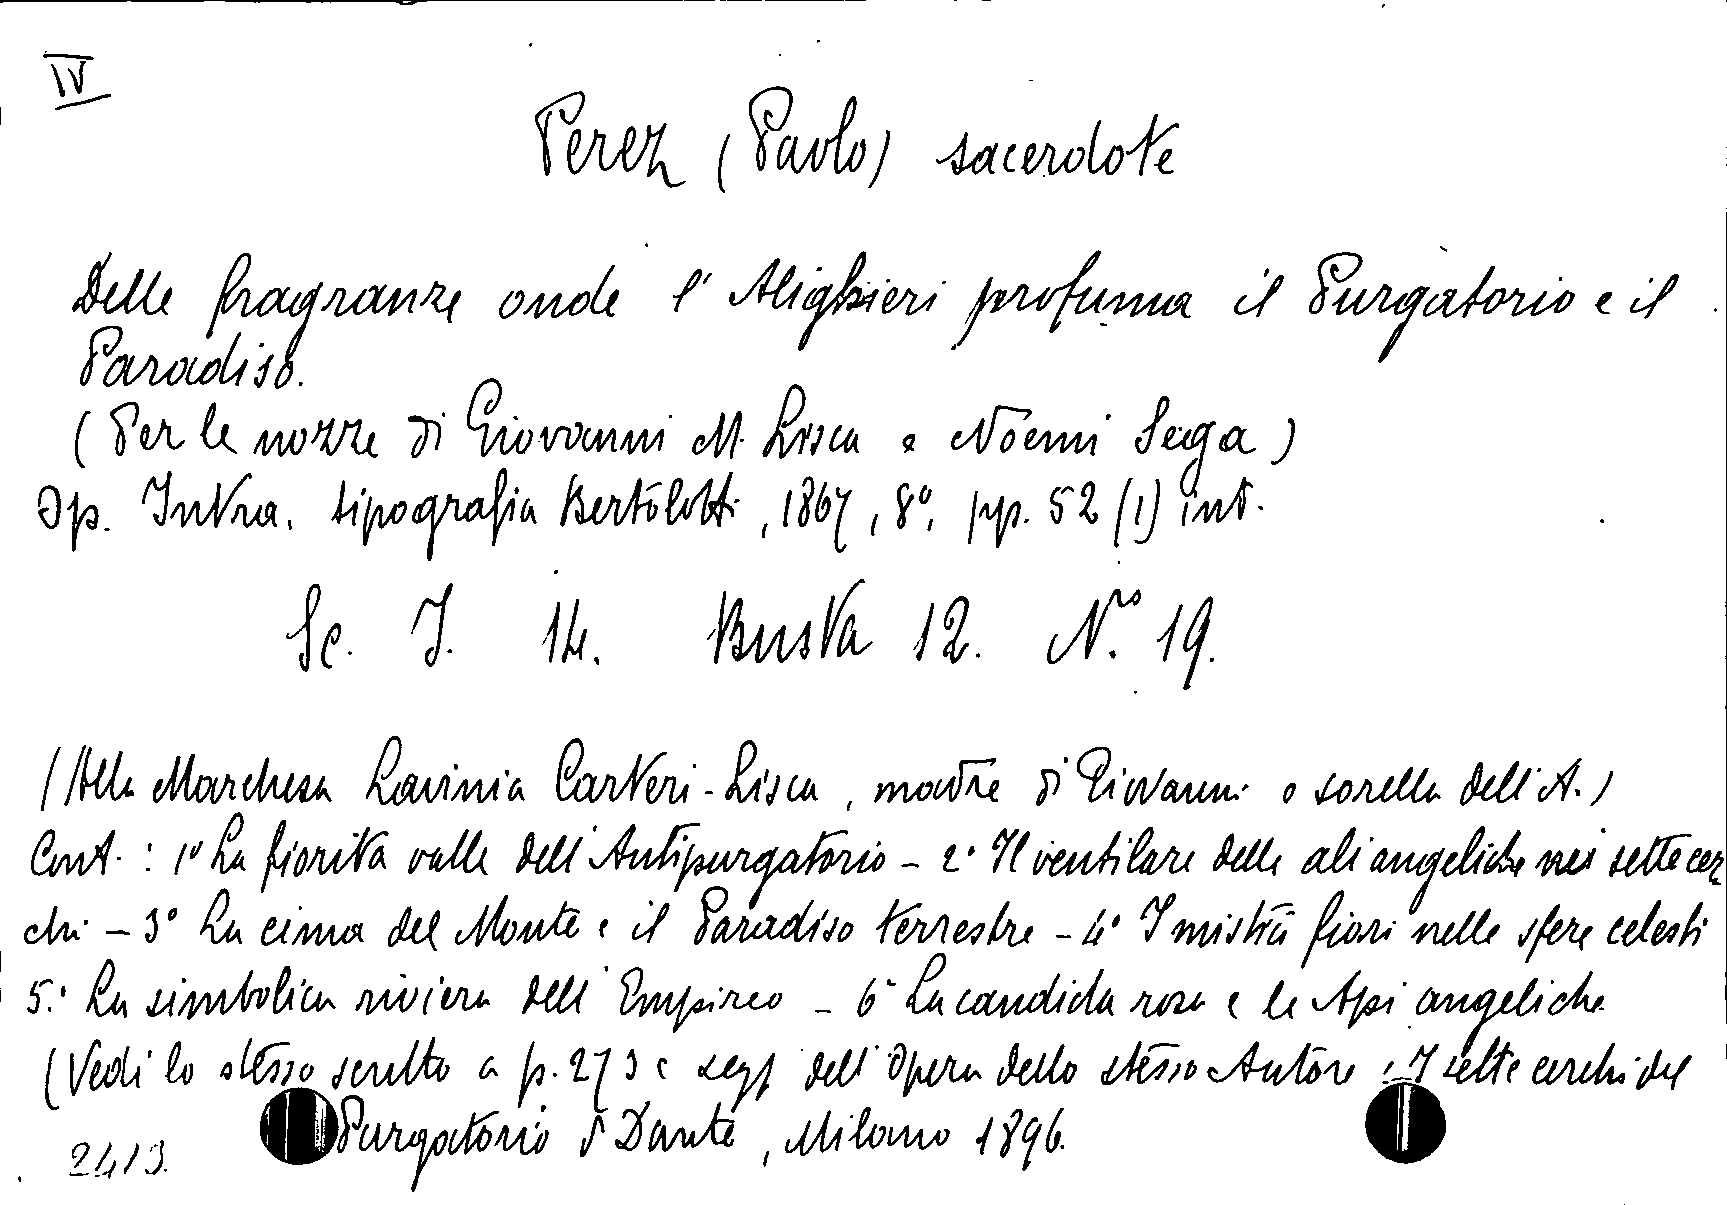 IV
Perez (Paolo) sacerdote
Delle fragranze onde l'Alighieri profuma il Purgatorio e il
Paradiso.
(Per le nozze di Giovanni M. Lisca e Noemi Sega)
Op. Intra, tipografia Bertolotti, 1867, 8°, pp. 52 (1) int.
Sc. I. 14. Busta 12. N.ro 19.
(Alla Marchesa Lavinia Carteri-Lisca, madre di Giovanni e sorella dell'A.)
Cont.: 1° La fiorita valle dell'Antipurgatorio - 2° Il ventilare delle ali angeliche nei sette cer
chi - 3° La cima del Monte e il Paradiso terrestre - 4° I mistici fiori nelle sfere celesti
5.° La simbolica riviera dell'Empireo - 6° La candida rosa e le Api angeliche
(Vedi lo stesso scritto a p. 273 e segg dell'Opera dello stesso Autore : I sette cerchi del
Purgatorio di Dante, Milano 1896.
2413.